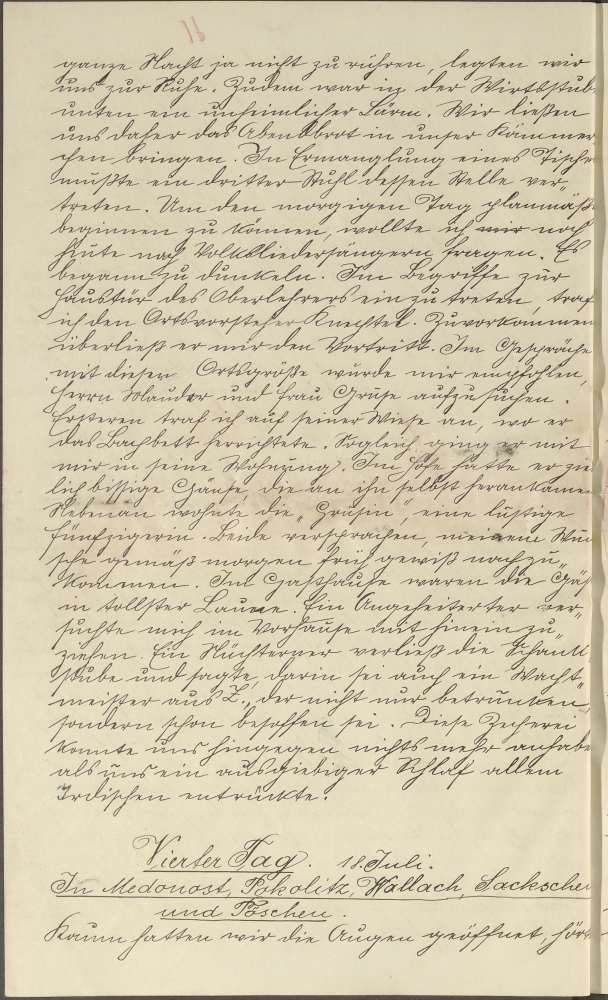 16
ganze Nacht ja nicht zu rühren, legten wir
uns zur Ruhe. Zudem war in der Wirtsstub
unten ein unheimlicher Lärm. Wir ließen
uns daher das Abendbrot in unser Kämmer
chen bringen. In Ermanglung eines Tische
mußte ein dritter Stuhl dessen Stelle ver-
treten. Um den morgigen Tag planmäß
beginnen zu können, wollte ich mir noch
heute nach Volksliedersängern fragen. Es
begann zu dunkeln. Im Begriffe zur
Haustür des Oberlehrers einzutreten, traf
ich den Ortsvorsteher Knechtel. Zuvorkommen
überließ er mir den Vortritt. Im Gespräche
mit dieser Ortsgröße wurde mir empfohlen,
Herrn Mauder und Frau Gruse aufzusuchen.
Ersteren traf ich auf seiner Wiese an, wo er
das Bachbett herrichtete. Sogleich ging er mit
mir in seine Wohnung. Im Hofe hatte er zie
lich bissige Gänse, die an ihn selbst herankamen
Nebenan wohnte die „Grusin", eine lustige
Fünfzigerin. Beide versprachen, meinem Wun
sche gemäß morgen früh gewiß nachzu-
kommen. Im Gasthause waren die Gäs
in tollster Laune. Ein Angeheiterter ver-
suchte mich im Vorhause mit hinein zu
ziehen. Ein Nüchterner verließ die Schank
stube und sagte, darin sei auch ein Wacht-
meister aus Z., der nicht nur betrunken,
sondern schon besoffen sei. Diese Zecherei
konnte uns hingegen nichts mehr anhabe
als uns ein ausgiebiger Schlaf allem
Irdischen entrückte.
Vierter Tag. 18. Juli.
In Medonost, Pokolitz, Wallach, Sacksche
und Töschen.
Kaum hatten wir die Augen geöffnet, hör